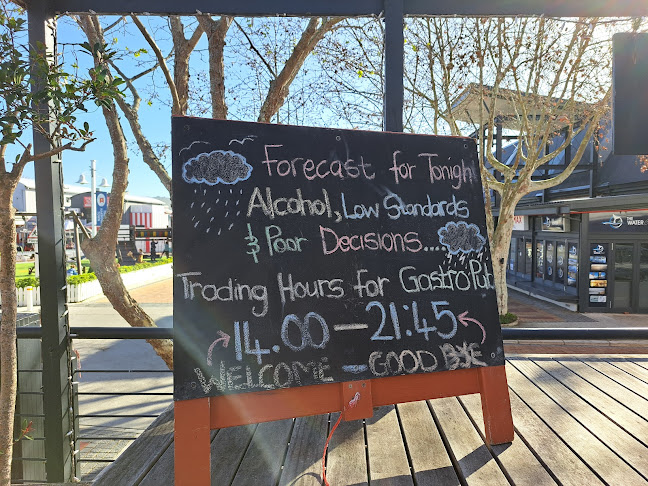 Forecast for Tonight
Alcohol, Low Standards
& Poor Decisions....
Trading Hours for Gastro Pub
14.00 — 21:45
WELCOME — GOOD BYE
THE
WATER